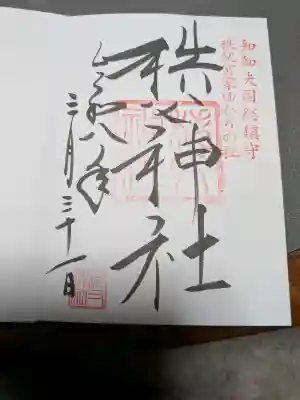 知知夫国総鎮守
秩父宮家ゆかりの社
秩父神社
令和八年
三月三十一日